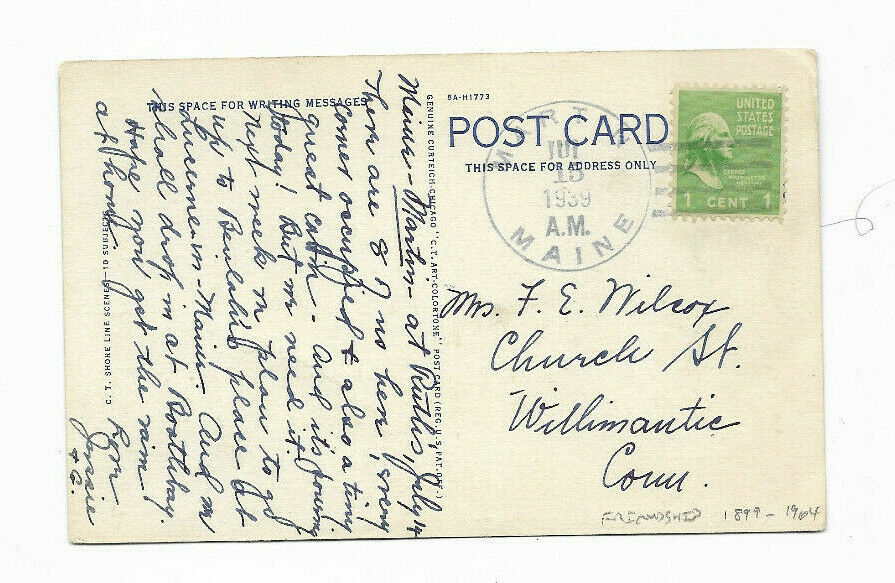 THIS SPACE FOR WRITING MESSAGES
Maine - Martin - at Ruth's, July 14
There are 8 of us here, every
corner occupied & also a tiny
guest cabin - and it's pouring
today! But we need it.
Next week we plan to go
up to Beulah's place at
Lucerne-in-Maine - And we
shall drop in at Boothbay.
Hope you get the rain
at home.
From
Jessie
+ G.
C. T. SHORE LINE SCENES—10 SUBJECTS
GENUINE CURTEICH-CHICAGO "C.T. ART-COLORTONE" POST CARD (REG. U.S. PAT. OFF.)
8A-H1773
POST CARD
THIS SPACE FOR ADDRESS ONLY
MARTIN
JUL
15
1939
A.M.
MAINE
UNITED
STATES
POSTAGE
GEORGE
WASHINGTON
1 CENT 1
Mrs. F. E. Wilcox
Church St.
Willimantic
Conn.
FRIENDSHIP 1899 - 1964